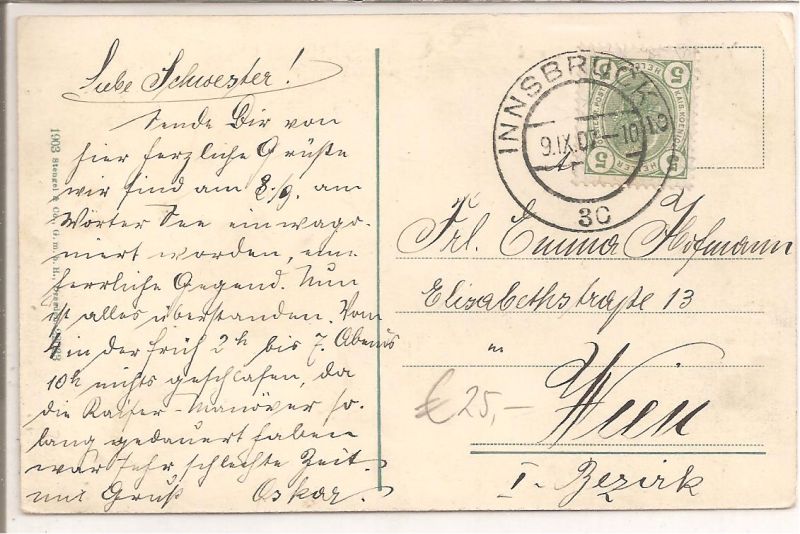 Liebe Schwester!
Sende Dir von
hier herzliche Grüße
wir sind am 8./9. am
Wörter See einwago-
niert worden, eine
herrliche Gegend. Nun
ist alles überstanden. Vom
4 in der früh 2h bis 7. Abends
10h nichts geschlafen, da
die Kaiser-Manöver so-
lang gedauert haben
war sehr schlechte Zeit.
mit Gruß Oskar.
1903 Stengel & Co., G. m. b. H.,
INNSBRUCK
9.IX.07
3c
5
5
5
5
HELLER
Frl. Emma Hofmann
Elisabethstraße 13
in
Wien
I. Bezirk
€ 25,-